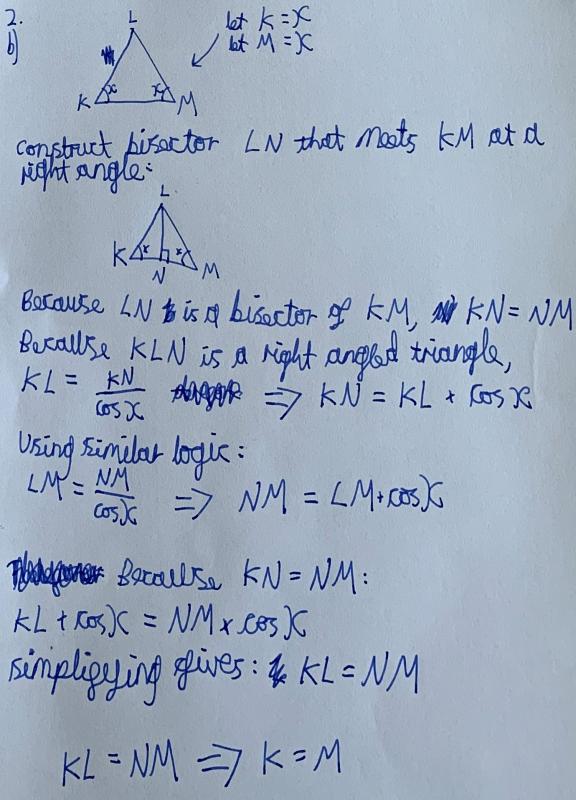 2.
b)
L
let K = x
let M = x
x x
K M
construct bisector LN that meets KM at a
right angle:
L
K x x M
N
Because LN is a bisector of KM, KN = NM
Because KLN is a right angled triangle,
KL = KN/cosx ⇒ KN = KL × cosx
Using similar logic:
LM = NM/cosx ⇒ NM = LM × cosx
Because KN = NM:
KL × cosx = NM × cosx
simplifying gives: KL = NM
KL = NM ⇒ K = M